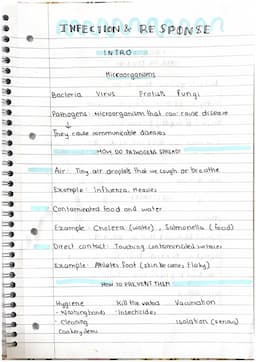 INFECTION & RESPONSE
INTRO
Microorganisms
Bacteria Virus Protists Fungi
Pathogens: Microorganism that can cause disease
↓
They cause communicable diseases
HOW DO PATHOGENS SPREAD?
Air: Tiny air droplets that we cough or breathe
Example: Influenza, measles
Contaminated food and water
Example: Cholera (water), Salmonella (food)
Direct contact: Touching contaminated surfaces
Example: Athletes Foot (skin becomes flaky)
HOW TO PREVENT THEM
Hygiene Kill the vector Vaccination
- Washing hands - Insecticides
- Cleaning Isolation (serious)